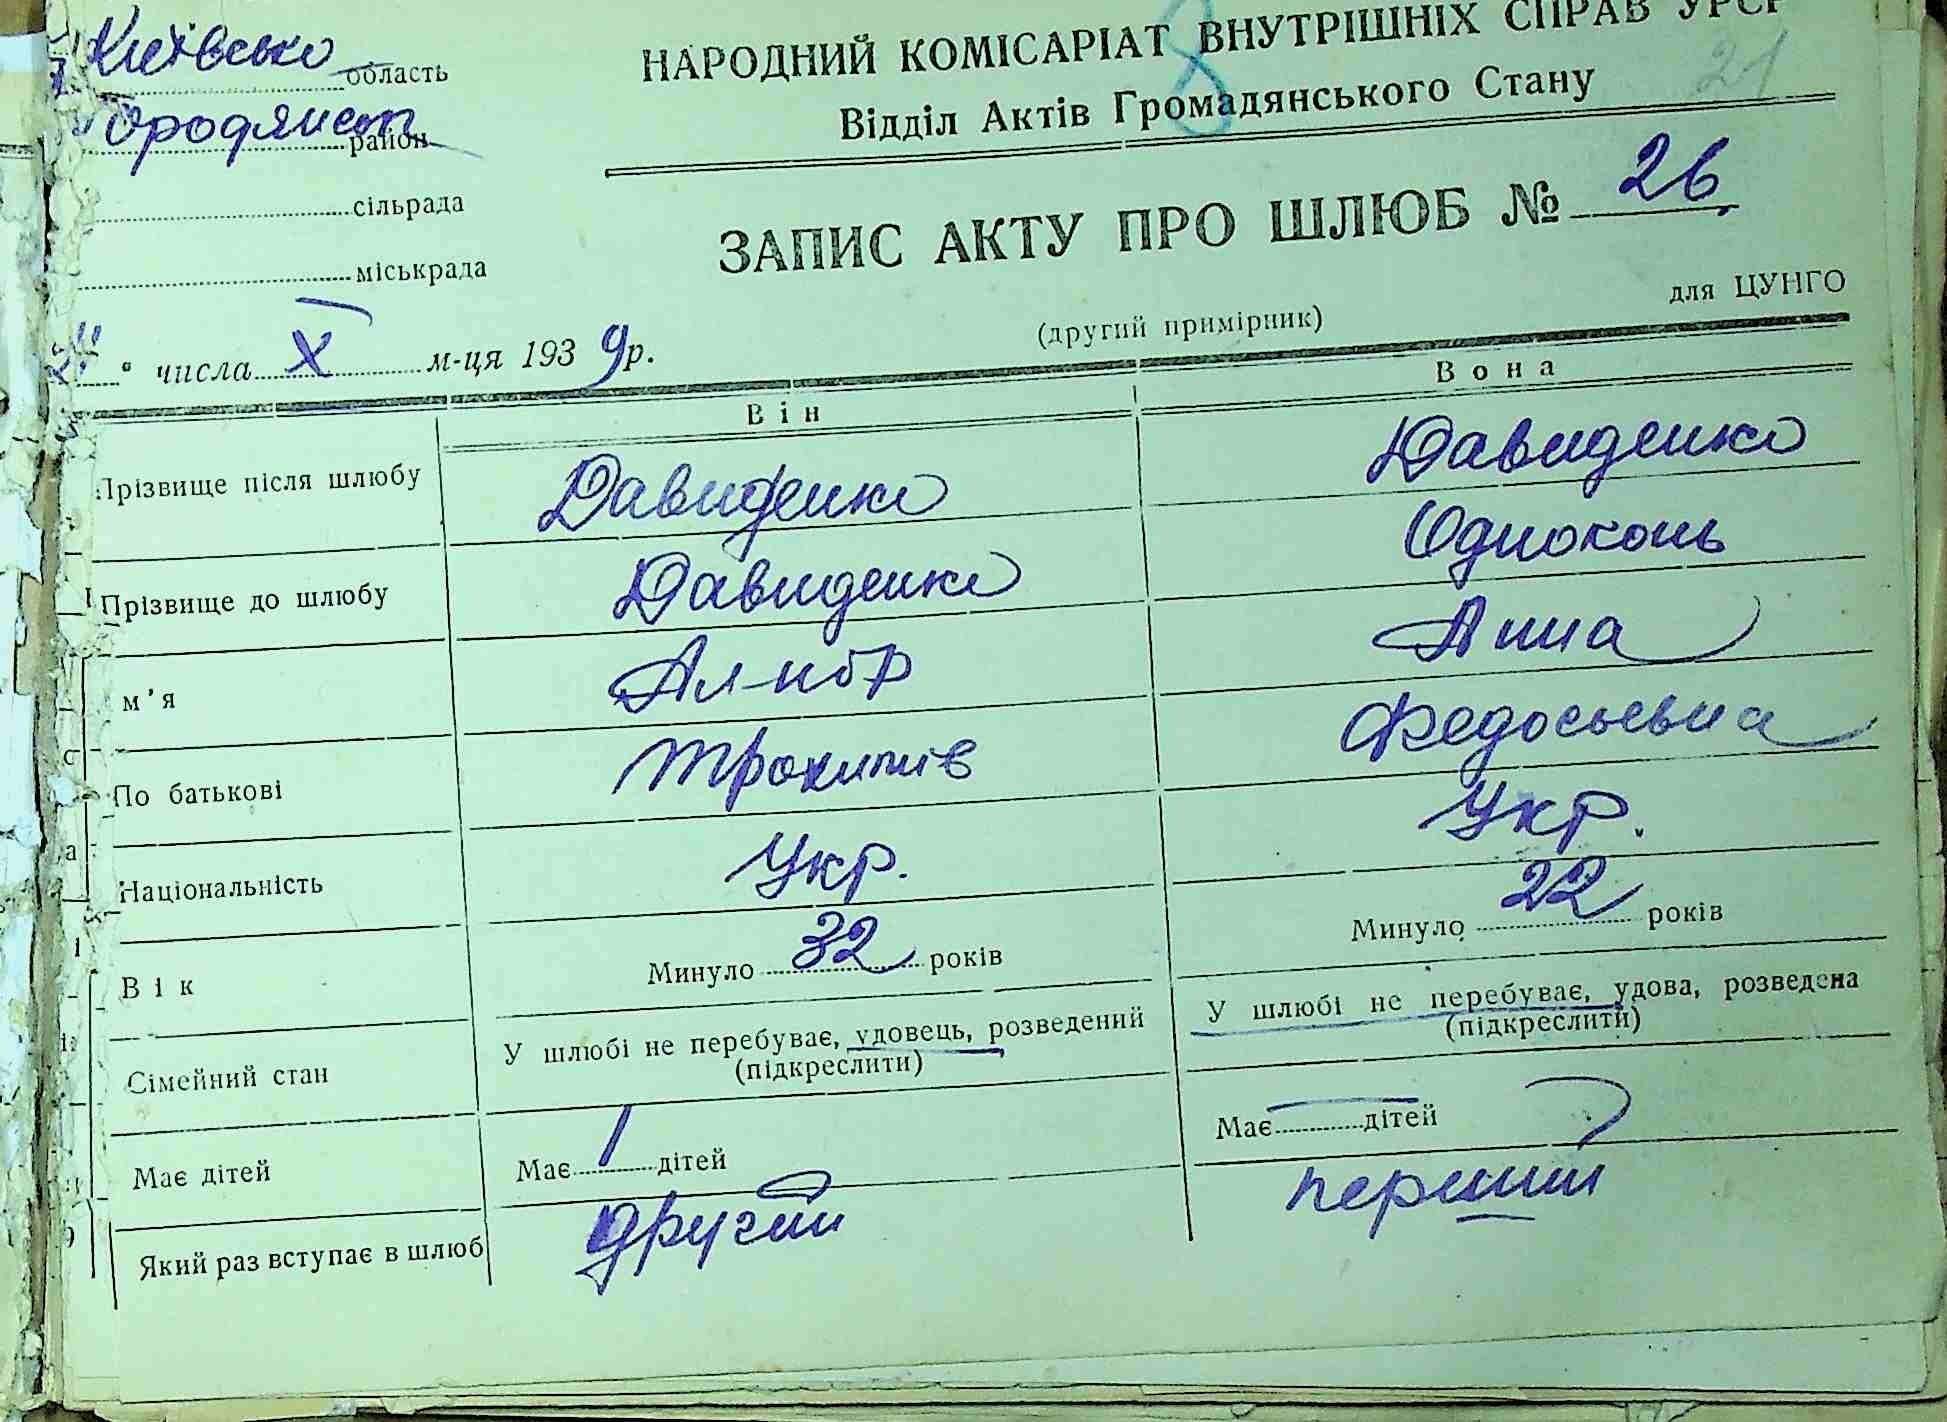 Київсько область
Бородянськ район
сільрада
міськрада
НАРОДНИЙ КОМІСАРІАТ ВНУТРІШНІХ СПРАВ УРСР
Відділ Актів Громадянського Стану
8
21
ЗАПИС АКТУ ПРО ШЛЮБ № 26
(другий примірник)
для ЦУНГО
" числа X м-ця 1939 р.
Він
Вона
Прізвище після шлюбу Давиденко Давиденко
Прізвище до шлюбу Давиденко Одноконь
м'я Анна
По батькові Трохимів Федосьевна
Національність Укр. Укр.
Вік Минуло 32 років Минуло 22 років
Сімейний стан У шлюбі не перебуває, удовець, розведений (підкреслити) У шлюбі не перебуває, удова, розведена (підкреслити)
Має дітей Має 1 дітей Має — дітей
Який раз вступає в шлюб другий перший